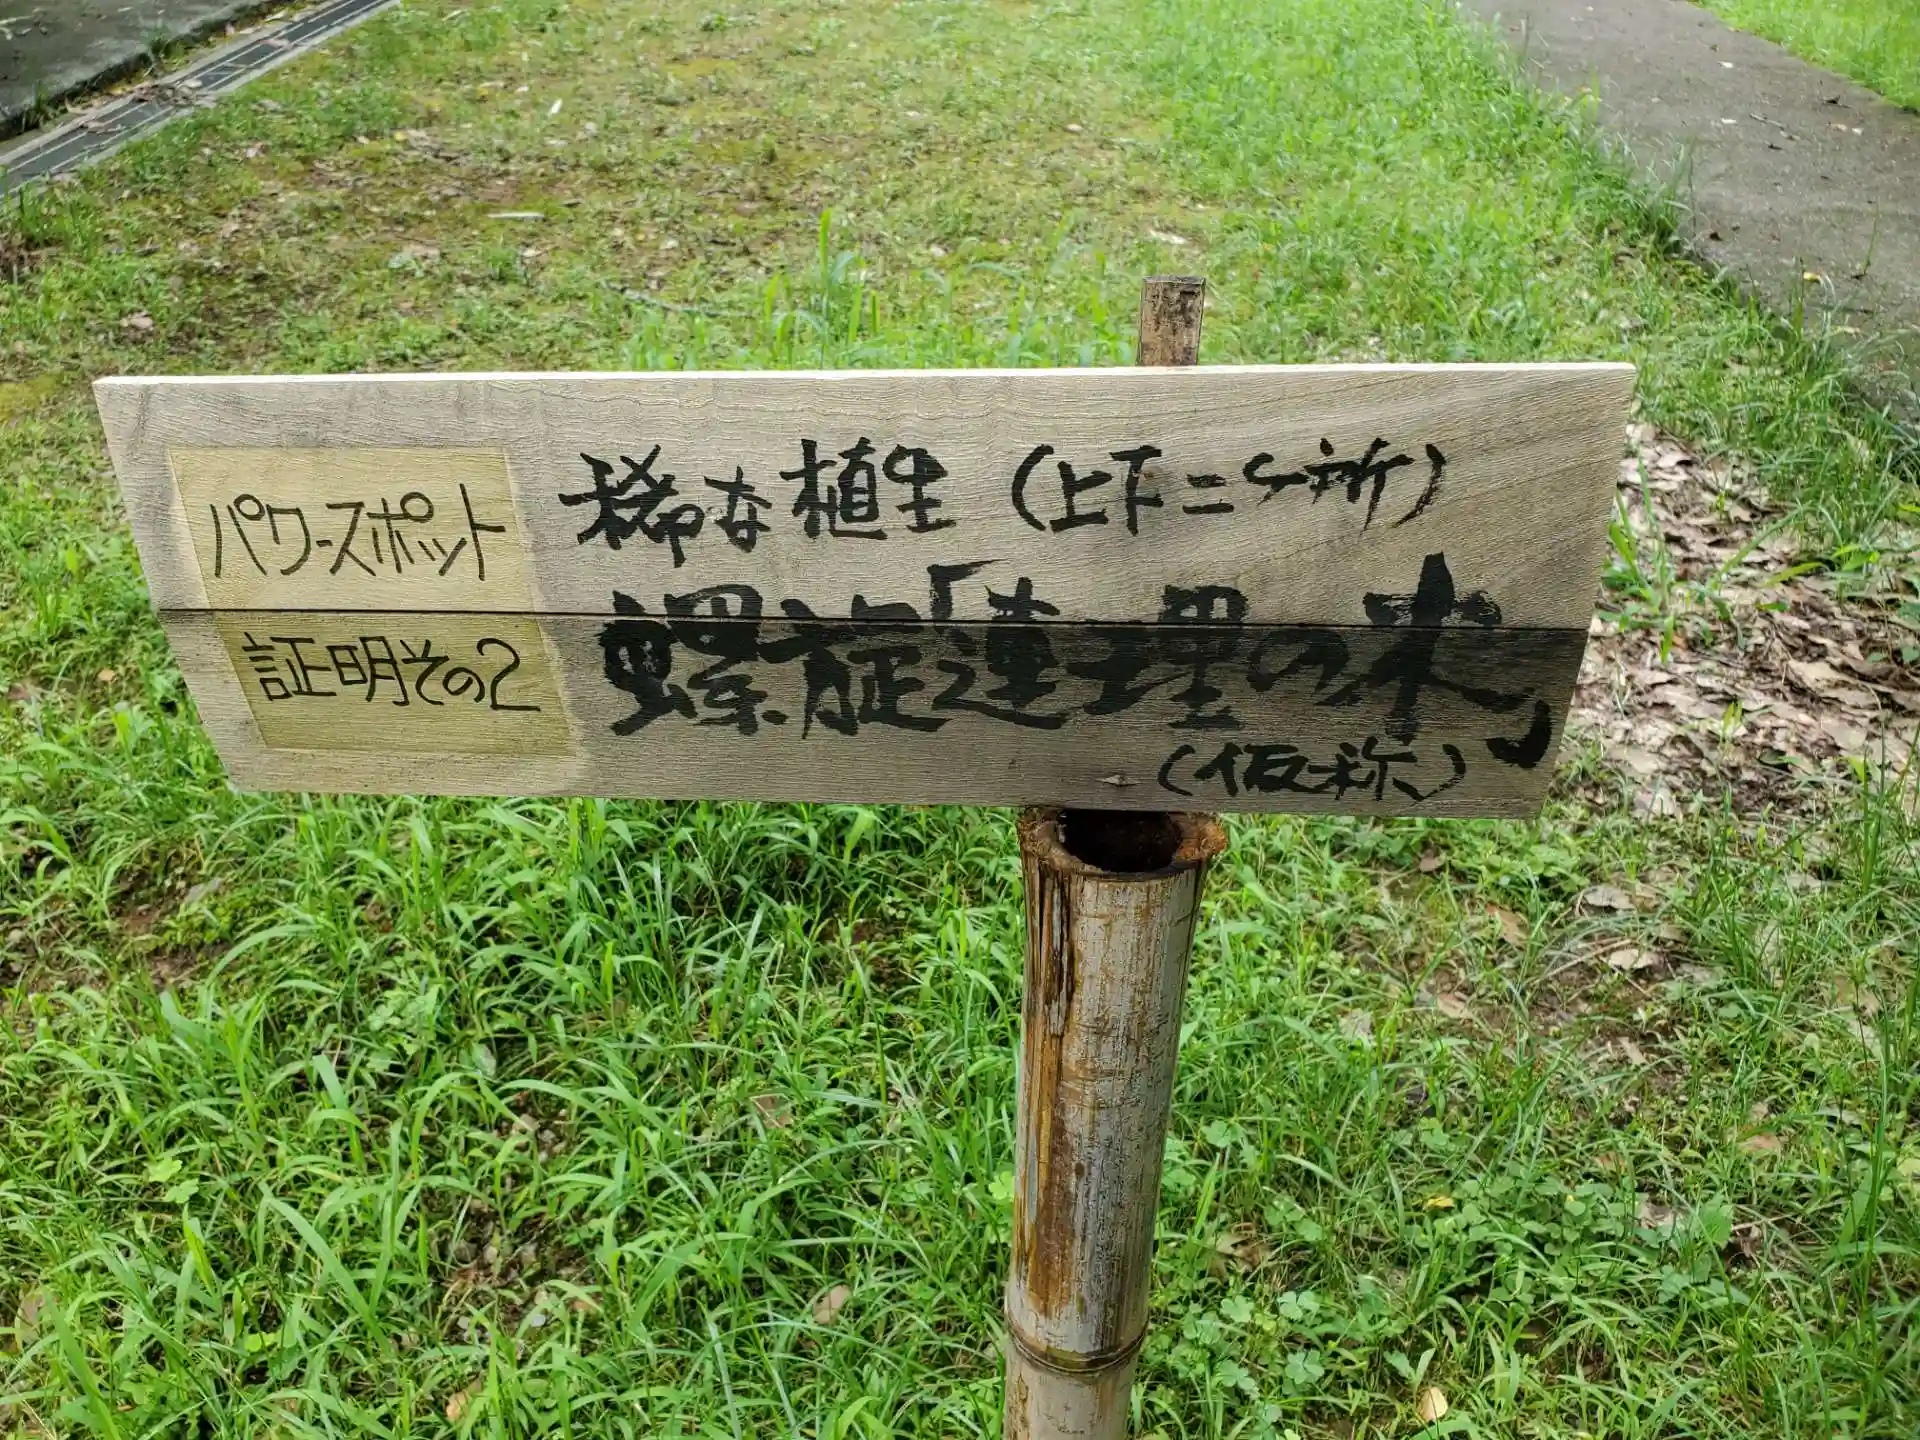 パワースポット
証明その2
稀な植生（上下二ケ所）
螺旋「連理の木」
（仮称）